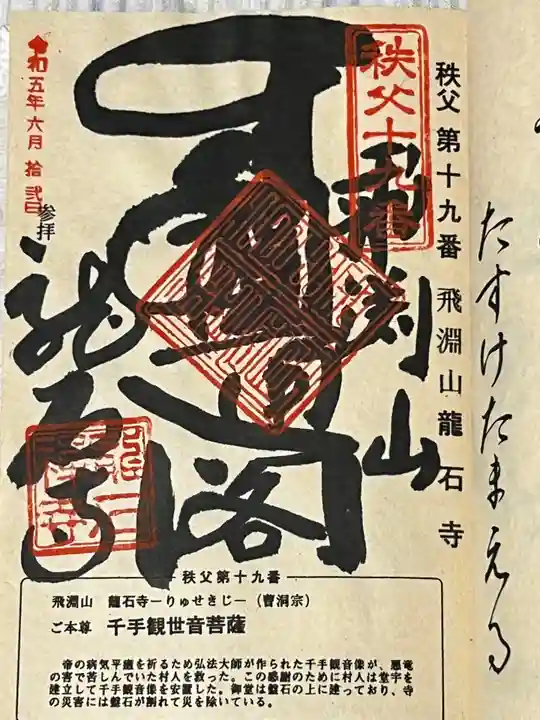 たすけたまえる
秩父第十九番 飛淵山龍石寺
秩父十九番
飛渕山
閣
龍石寺
令和五年六月拾弐日
参拝
秩父第十九番
飛淵山 龍石寺ーりゅせきじー(曹洞宗)
ご本尊 千手観世音菩薩
帝の病気平癒を祈るため弘法大師が作られた千手観音像が、悪竜
の害で苦しんでいた村人を救った。この感謝のために村人は堂宇を
建立して千手観音像を安置した。御堂は盤石の上に建っており、寺
の災害には盤石が割れて災を除いている。